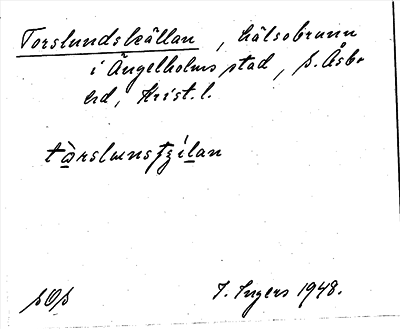 Torslundskällan, hälsobrunn
i Ängelholms stad, S. Åsbo
hd, Krist. l.
tårslunsʃʒilan
sOs
I. Ingers 1948.